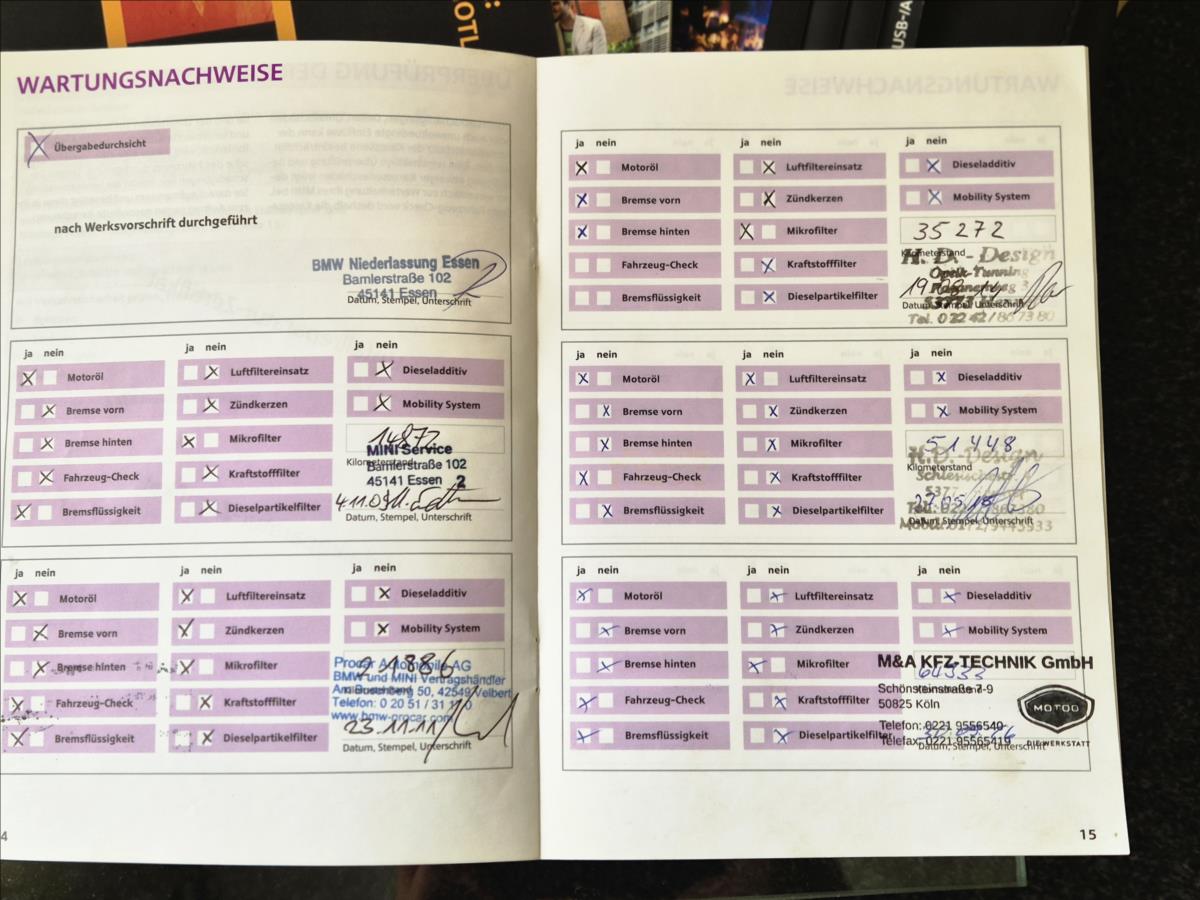 WARTUNGSNACHWEISE
Übergabedurchsicht
nach Werksvorschrift durchgeführt
BMW Niederlassung Essen
Bamlerstraße 102
45141 Essen
Datum, Stempel, Unterschrift
ja nein ja nein ja nein
Motoröl Luftfiltereinsatz Dieseladditiv
Bremse vorn Zündkerzen Mobility System
Bremse hinten Mikrofilter
Fahrzeug-Check Kraftstofffilter
Bremsflüssigkeit Dieselpartikelfilter
14872
Kilometerstand
MINI Service
Bamlerstraße 102
45141 Essen 2
Datum, Stempel, Unterschrift
ja nein ja nein ja nein
Motoröl Luftfiltereinsatz Dieseladditiv
Bremse vorn Zündkerzen Mobility System
Bremse hinten Mikrofilter
Fahrzeug-Check Kraftstofffilter
Bremsflüssigkeit Dieselpartikelfilter
21886
Procar Automobile AG
BMW und MINI Vertragshändler
Am Buschberg 50, 42549 Velbert
Telefon: 0 20 51 / 31
www.bmw-procar.com
23.11.11
Datum, Stempel, Unterschrift
4
ja nein ja nein ja nein
Motoröl Luftfiltereinsatz Dieseladditiv
Bremse vorn Zündkerzen Mobility System
Bremse hinten Mikrofilter
Fahrzeug-Check Kraftstofffilter
Bremsflüssigkeit Dieselpartikelfilter
35272
Kilometerstand
H. D. - Design
Optik-Tunning
Datum, Stempel, Unterschrift
Tel. 0 22 42 / 86 73 80
ja nein ja nein ja nein
Motoröl Luftfiltereinsatz Dieseladditiv
Bremse vorn Zündkerzen Mobility System
Bremse hinten Mikrofilter
Fahrzeug-Check Kraftstofffilter
Bremsflüssigkeit Dieselpartikelfilter
51448
H. D. Design
Kilometerstand
Datum, Stempel, Unterschrift
ja nein ja nein ja nein
Motoröl Luftfiltereinsatz Dieseladditiv
Bremse vorn Zündkerzen Mobility System
Bremse hinten Mikrofilter
Fahrzeug-Check Kraftstofffilter
Bremsflüssigkeit Dieselpartikelfilter
M&A KFZ-TECHNIK GmbH
Schönsteinstraße 7-9
50825 Köln
Telefon: 0221 9556540
Telefax: 0221 95565419
MOTOO
DIE WERKSTATT
Datum, Stempel, Unterschrift
15